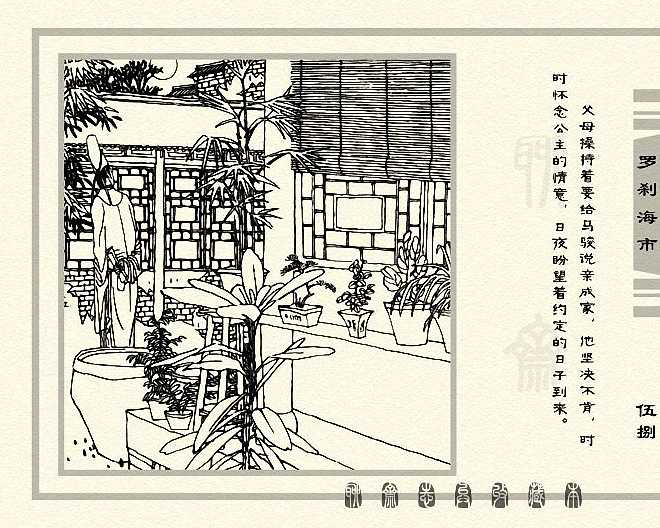 父母操持着要给马骏说亲成家，他坚决不肯，时
时怀念公主的情意，日夜盼望着约定的日子到来。
罗刹海市
伍捌